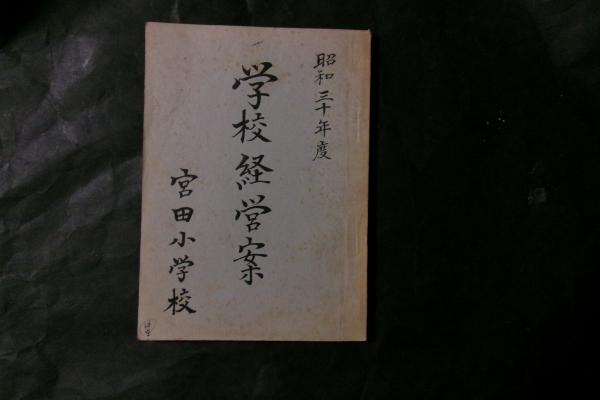 昭和三十年度
学校経営案
宮田小学校